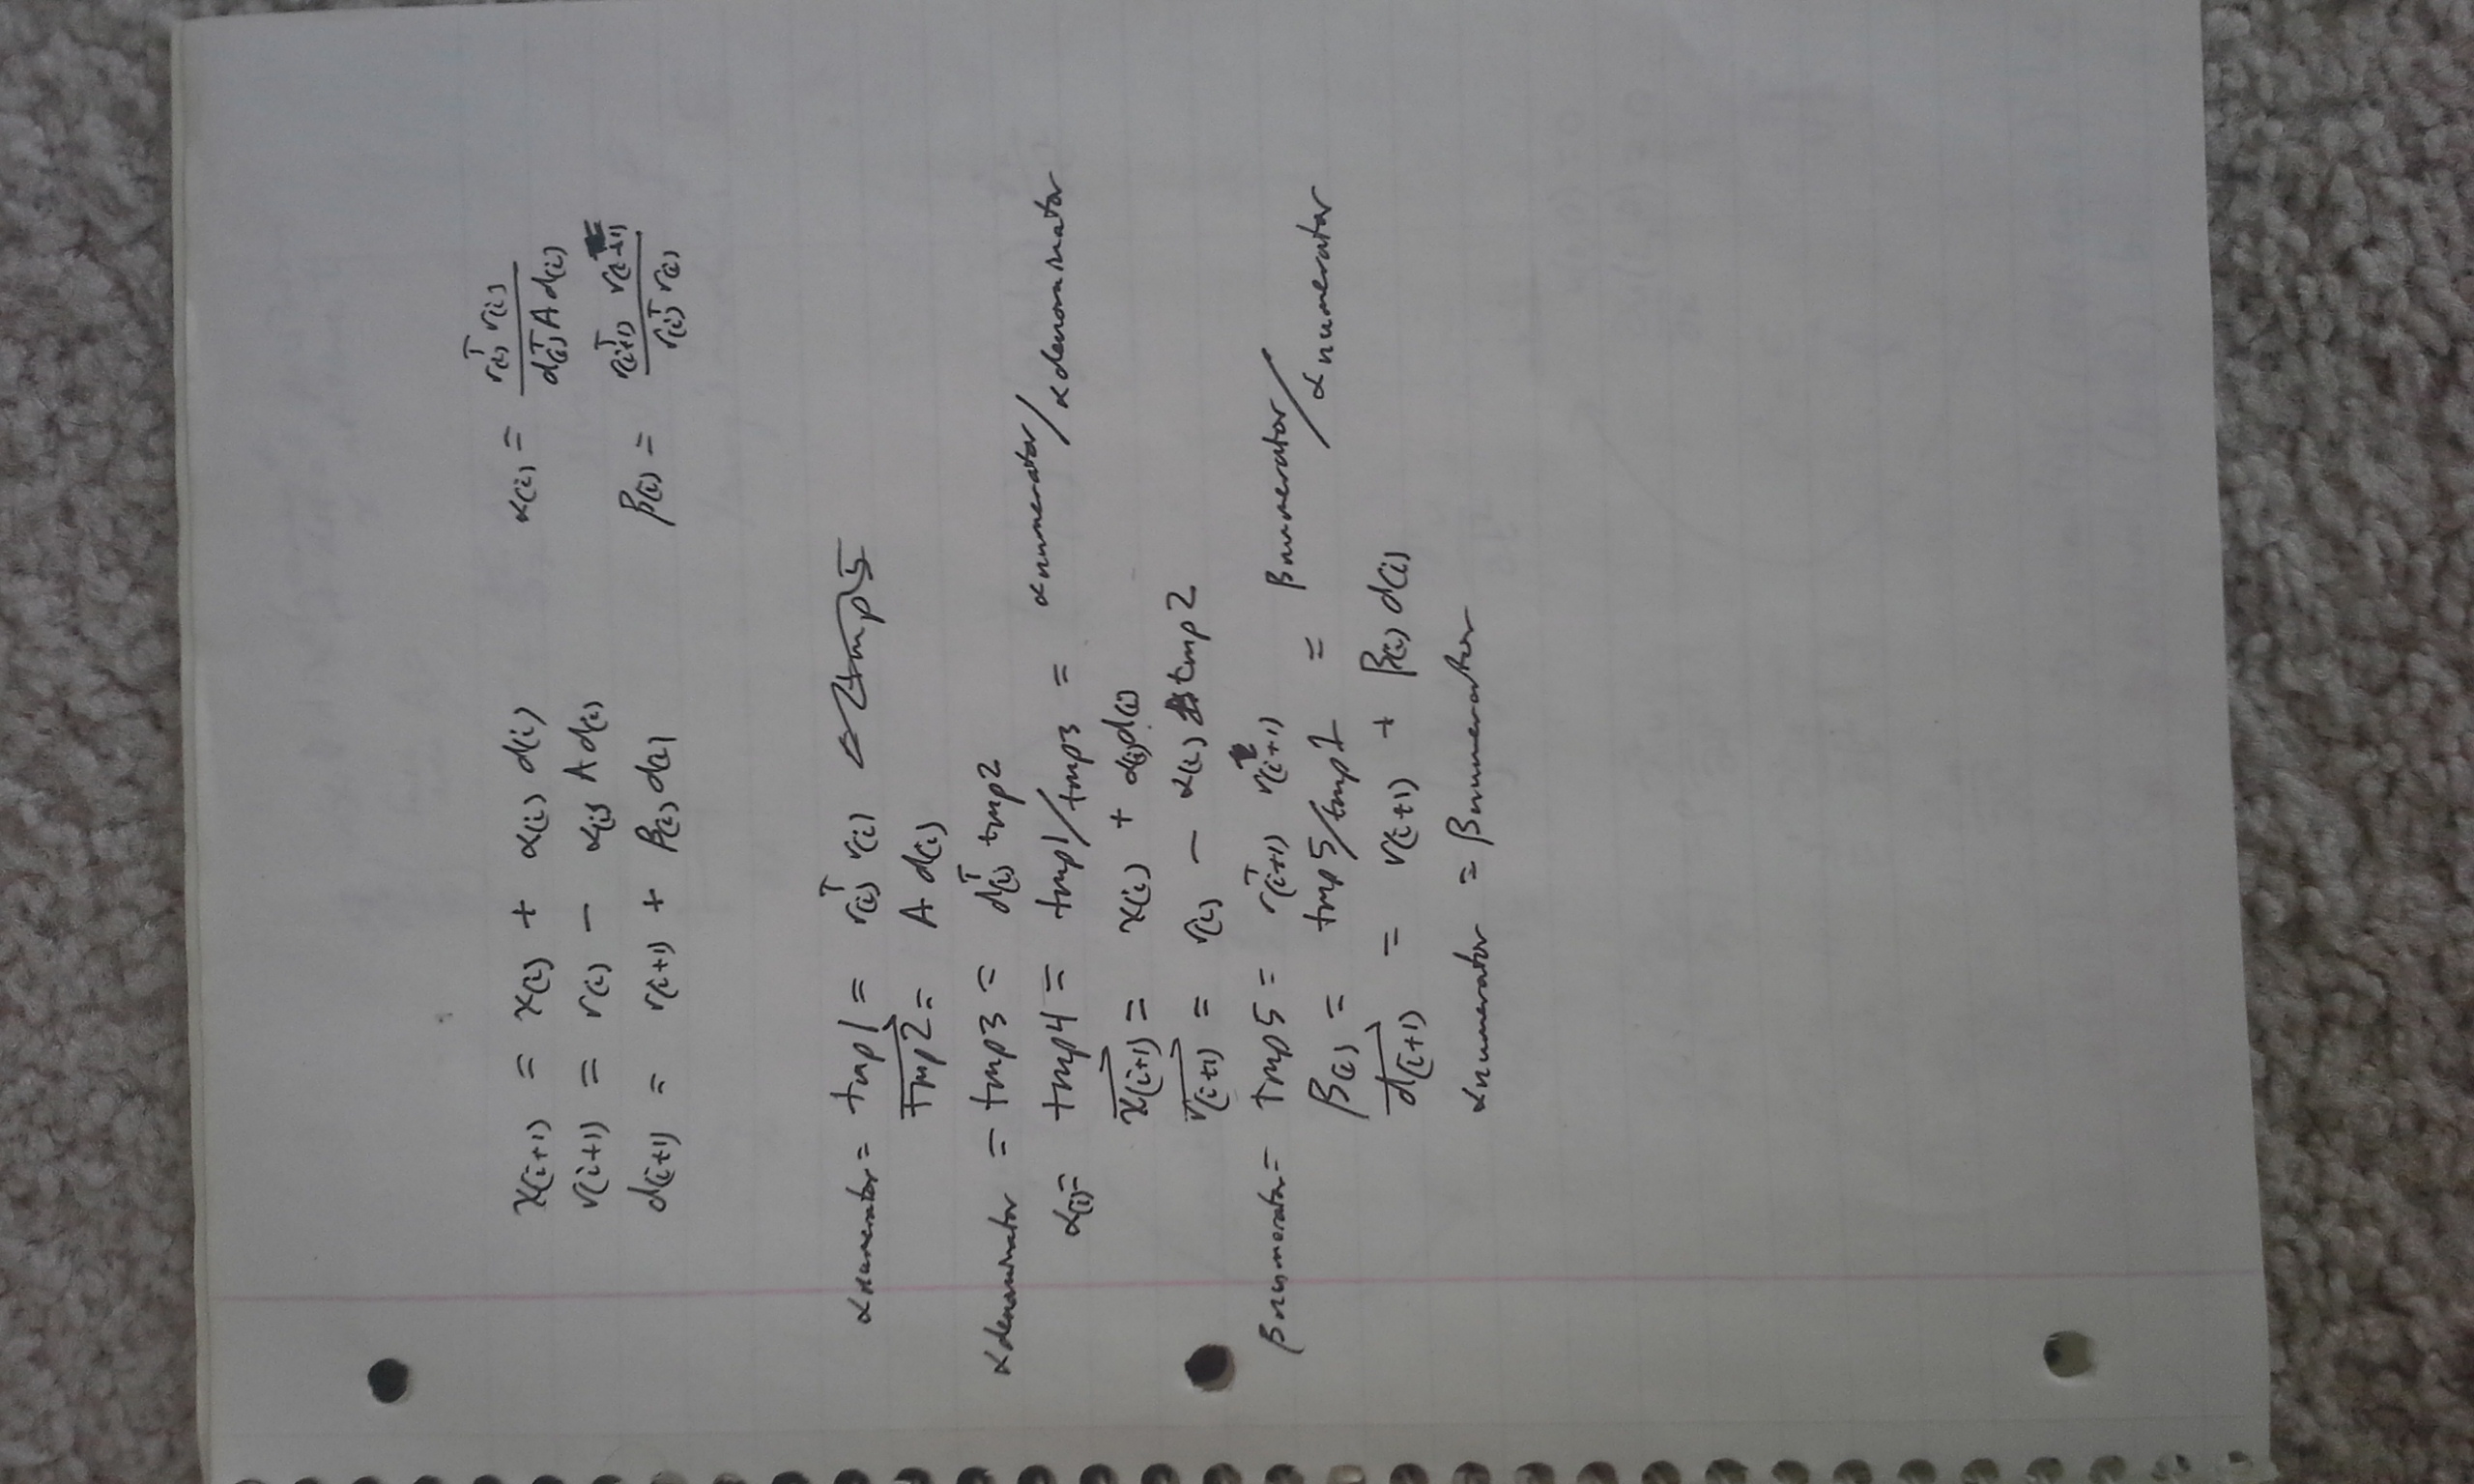 x(i+1) = x(i) + α(i) d(i)    α(i) = r(i)ᵀ r(i) / d(i)ᵀ A d(i)
r(i+1) = r(i) − α(i) A d(i)
d(i+1) = r(i+1) + β(i) d(i)    β(i) = r(i+1)ᵀ r(i+1) / r(i)ᵀ r(i)
αnumerator = tmp1 = r(i)ᵀ r(i) ← tmp5
tmp2 = A d(i)
αdenominator = tmp3 = d(i)ᵀ tmp2
α(i) = tmp4 = tmp1/tmp3 = αnumerator/αdenominator
x(i+1) = x(i) + α(i)d(i)
r(i+1) = r(i) − α(i) tmp2
βnumerator = tmp5 = r(i+1)ᵀ r(i+1)
β(i) = tmp5/tmp1 = βnumerator/αnumerator
d(i+1) = r(i+1) + β(i) d(i)
αnumerator = βnumerator